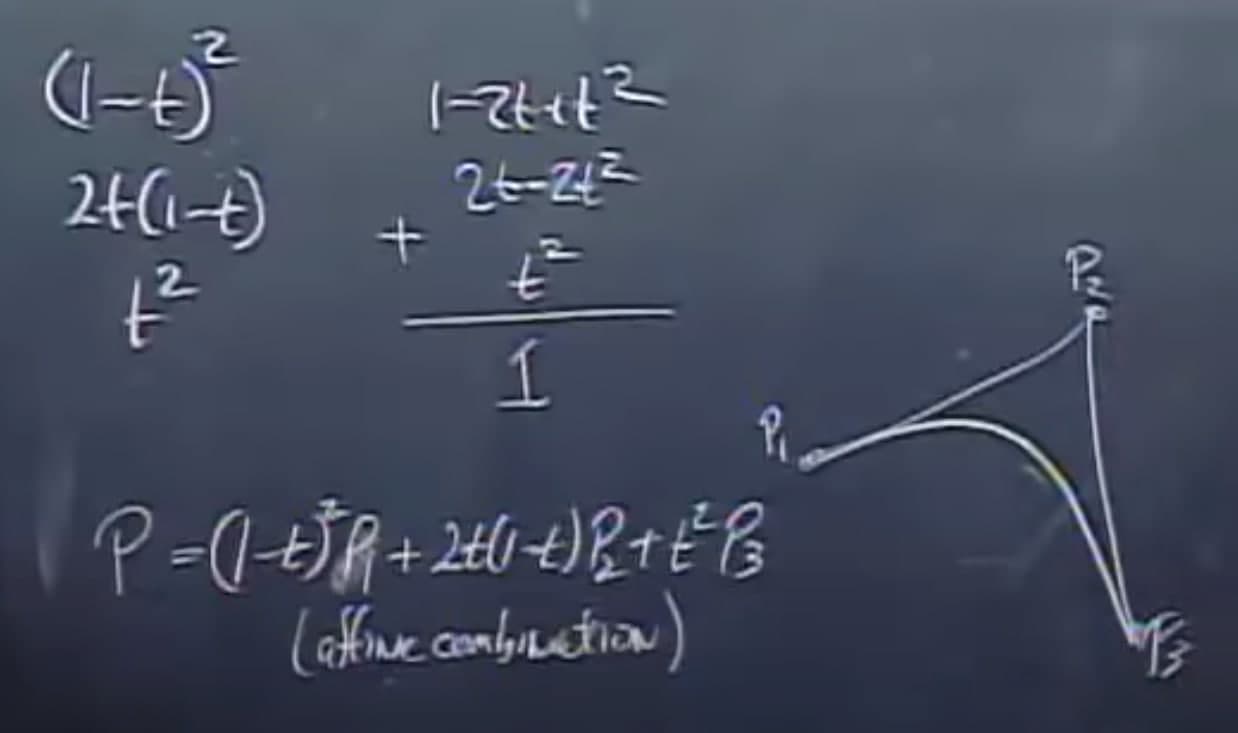 (1-t)²
2t(1-t)
t²
1-2t+t²
2t-2t²
+ t²
1
P = (1-t)²P₁ + 2t(1-t)P₂ + t²P₃
(affine combination)
P₁
P₂
P₃